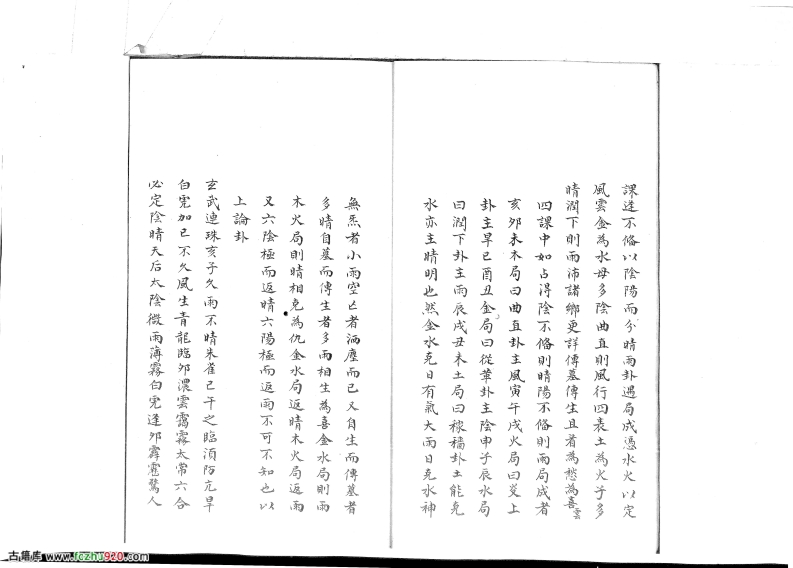 課逢不偹以陰陽而分晴雨卦遇局成憑水火以定
風雲金為水母多陰曲直則風行四表土為火子多
晴潤下則雨沛諸鄉更詳傳墓傳生且看為愁為喜雲
四課中如占得陰不偹則晴陽不偹則雨局成者
亥夘未木局曰曲直卦主風寅午戌火局曰炎上
卦主旱巳酉丑金局曰從革卦主陰申子辰水局
曰潤下卦主雨辰戌丑未土局曰稼穡卦土能克
水亦主晴明也然金水克日有氣大雨日克水神
無炁者小雨空亡者洒塵而已又自生而傳墓者
多晴自墓而傳生者多雨相生為喜金水局則雨
木火局則晴相克為仇金水局返晴木火局返雨
又六陰極而返晴六陽極而返雨不可不知也以
上論卦
玄武連珠亥子久雨不晴朱雀巳午之臨須防亢旱
白虎加巳不久風生青龍臨夘濃雲靄霧太常六合
必定陰晴天后太陰微雨薄霧白虎逢夘霹靂驚人
古籍库 www.fczhu920.com